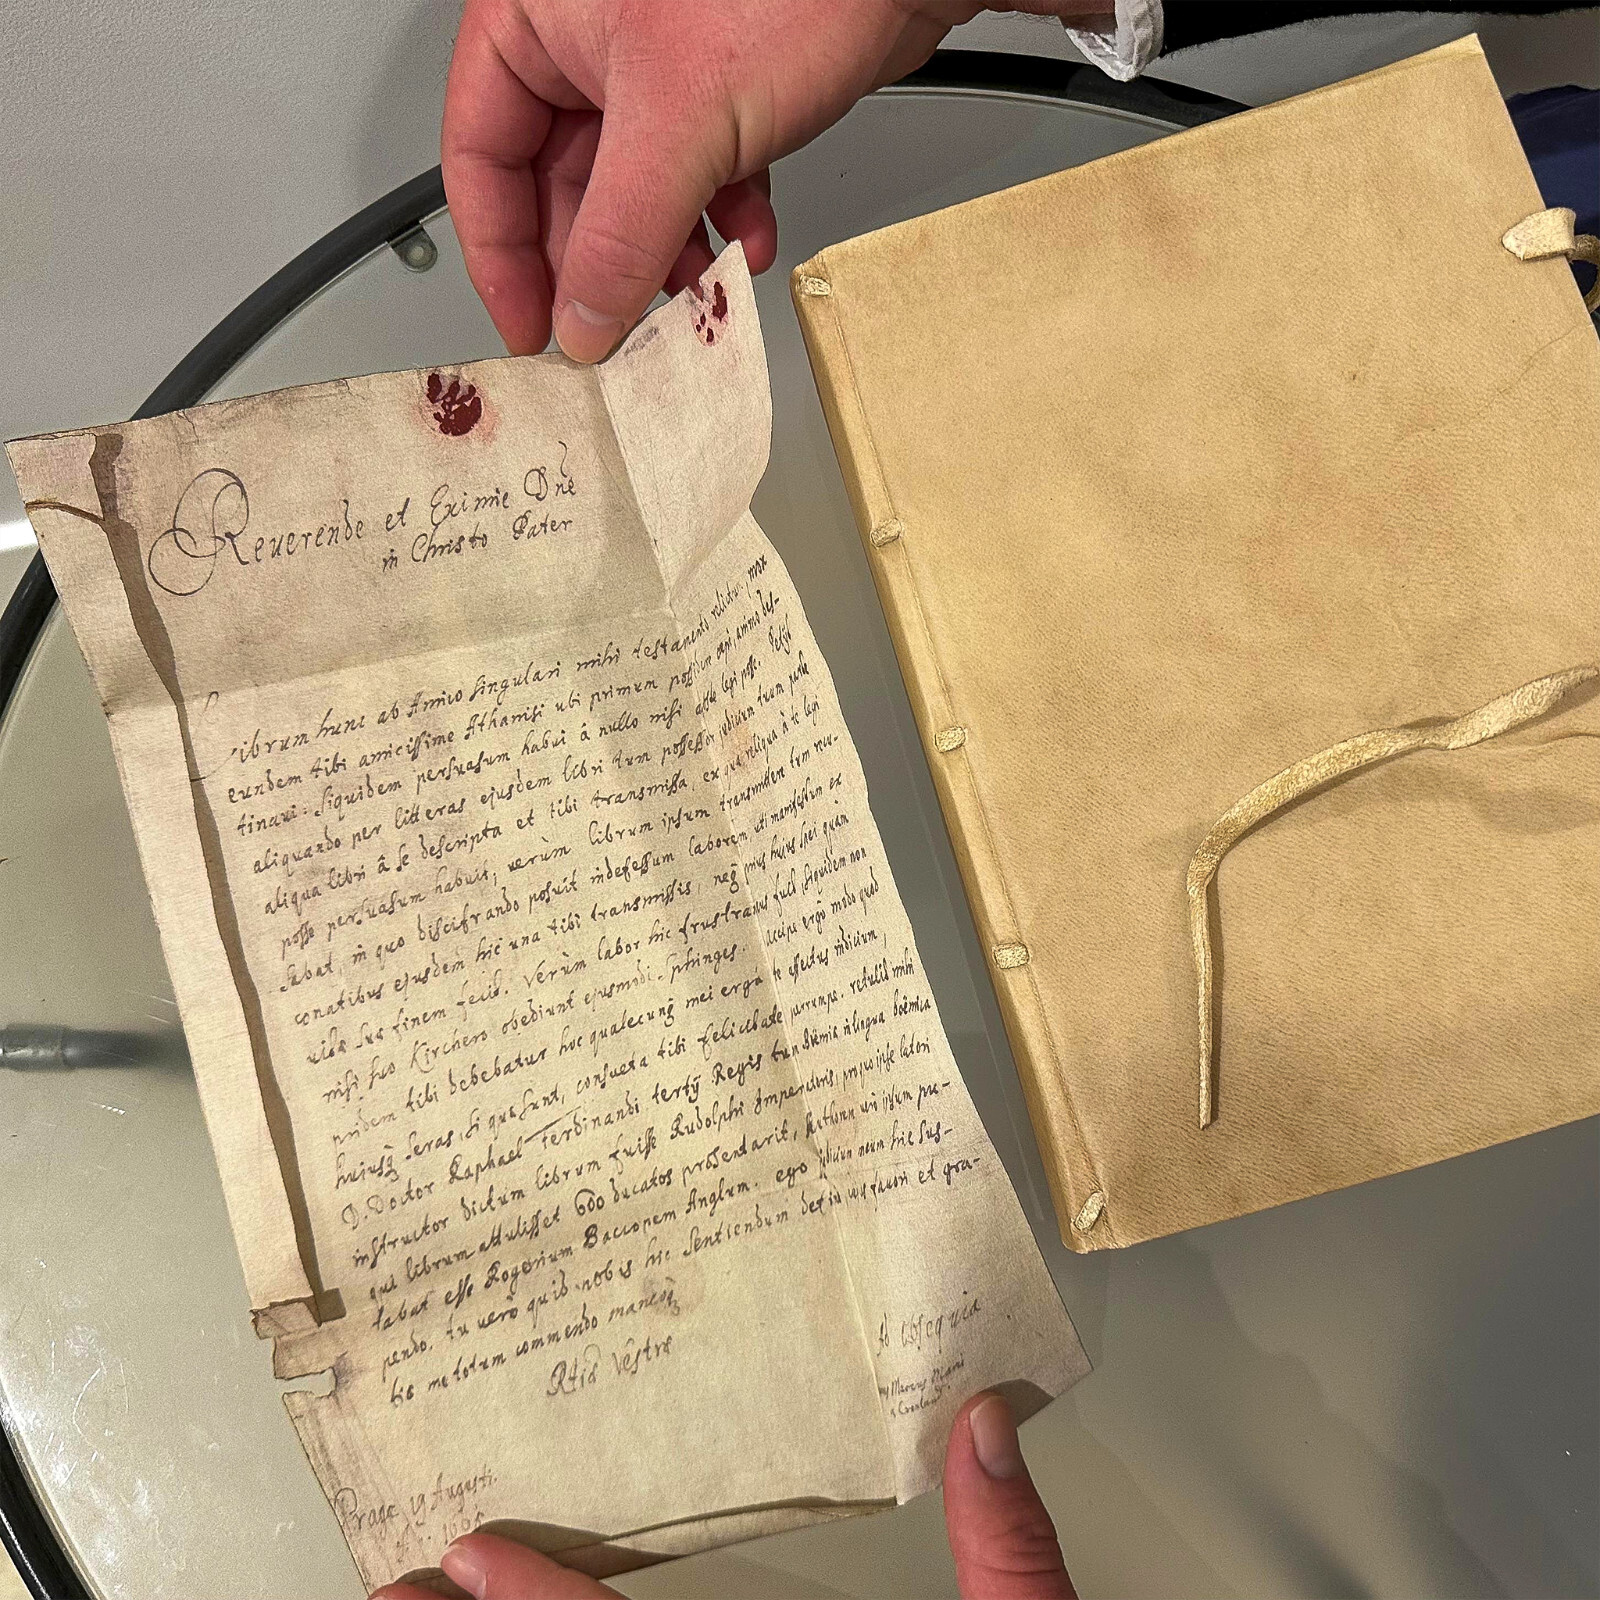 Reuerende et Eximie Dne
in Christo Pater
Librum hunc ab Amico singulari mihi testamento relictum, mox
eundem tibi amicissime Athanisi ubi primum possidere cœpi, animo des-
tinaui: siquidem persuasum habui à nullo nisi abs te legi posse. Petijt
aliquando per litteras ejusdem libri tum possessor judicium tuum parte
aliqua libri à se descripta et tibi transmissa, ex qua reliqua à te legi
posse persuasum habuit; uerùm librum ipsum transmittere tum recu-
sabat, in quo discifrando posuit indefessum laborem, uti manifestum ex
conatibus ejusdem hic una tibi transmissis, neq prius hujus spei quàm
uitæ suæ finem fecit. Verùm labor hic frustraneus fuit, siquidem non
nisi suo Kirchero obediunt ejusmodi sphinges. Accipe ergò modò quod
pridem tibi debebatur hoc qualecunq mei ergà te affectus indicium,
huiusq seras, si quæ sunt, consueta tibi felicitate perrumpe. retulit mihi
D. Doctor Raphael Ferdinandi tertij Regis tum Boëmiæ in lingua boëmica
instructor dictum librum fuisse Rudolphi Imperatoris, pro quo ipse latori
qui librum attulisset 600 ducatos præsentarit, Authorem uerò ipsum pu-
tabat esse Rogerium Bacconem Anglum. ego judicium meum hic sus-
pendo. tu uerò quid nobis hic sentiendum defini, cujus fauori et gra-
tiæ me totum commendo maneoq
Rtiæ Vestræ
Ad Obsequia
Marcus Marci
a Cronland
Pragæ 19 Augusti.
Aº: 1665